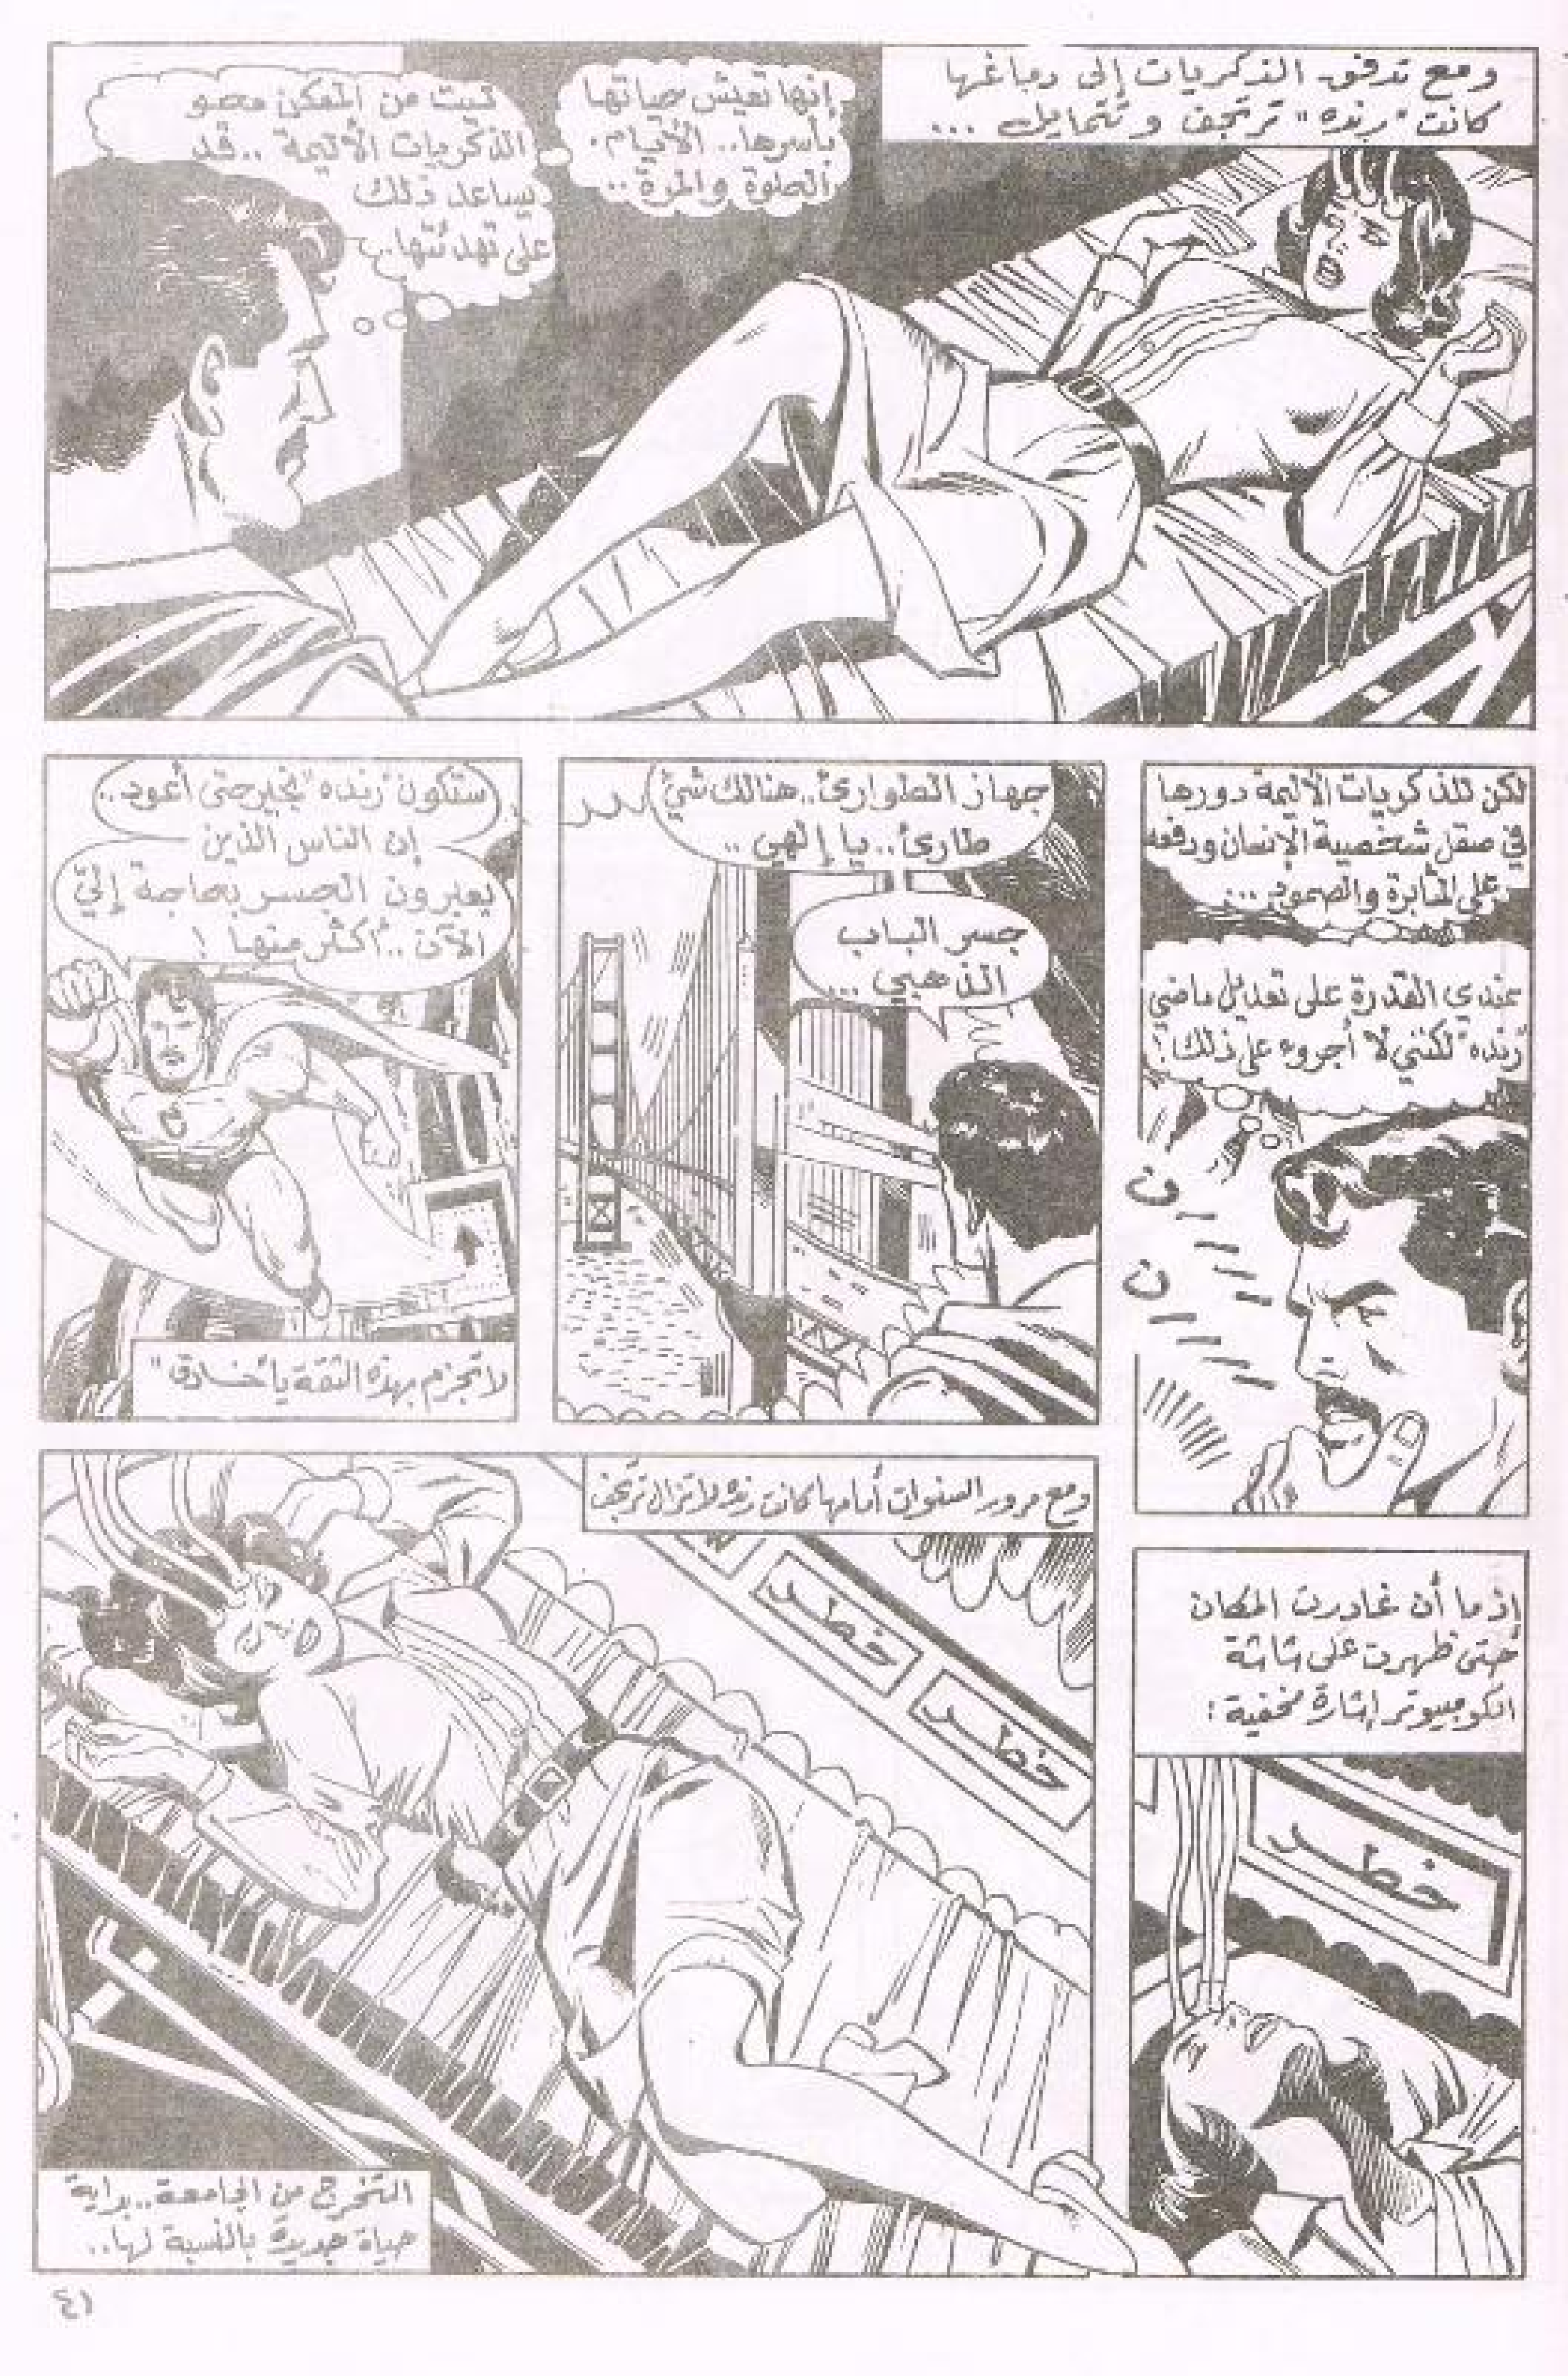 ومع تدفق الذكريات إلى دماغها
كانت "رنده" ترتجف وتتمايل ...
إنها تعيش حياتها
بأسرها.. الأيام
الحلوة والمرة ..
ليت من الممكن محو
الذكريات الأليمة ..قد
يساعد ذلك
على تهدئتها..
لكن للذكريات الأليمة دورها
في صقل شخصية الإنسان ودفعه
على المثابرة والصمود ...
عندي القدرة على تعديل ماضي
"رنده" لكنني لا أجرؤ على ذلك!
ررررن
ررررن
جهاز الطوارئ..هنالك شيْ
طارئ..يا إلهي ..
جسر الباب
الذهبي ...
ستكون "رنده" بخير حتى أعود..
إن الناس الذين
يعبرون الجسر بحاجة إليّ
الآن ..أكثر منها !
لا تجزم بهذه الثقة يا "خارق"
إذ ما أن غادرت المكان
حتى ظهرت على شاشة
الكومبيوتر إشارة مخفية :
خطر
ومع مرور السنوات أمامها كانت رنده لا تزال ترتجف
خطر
خطر
التخرج من الجامعة..بداية
حياة جديدة بالنسبة لها..
٤١